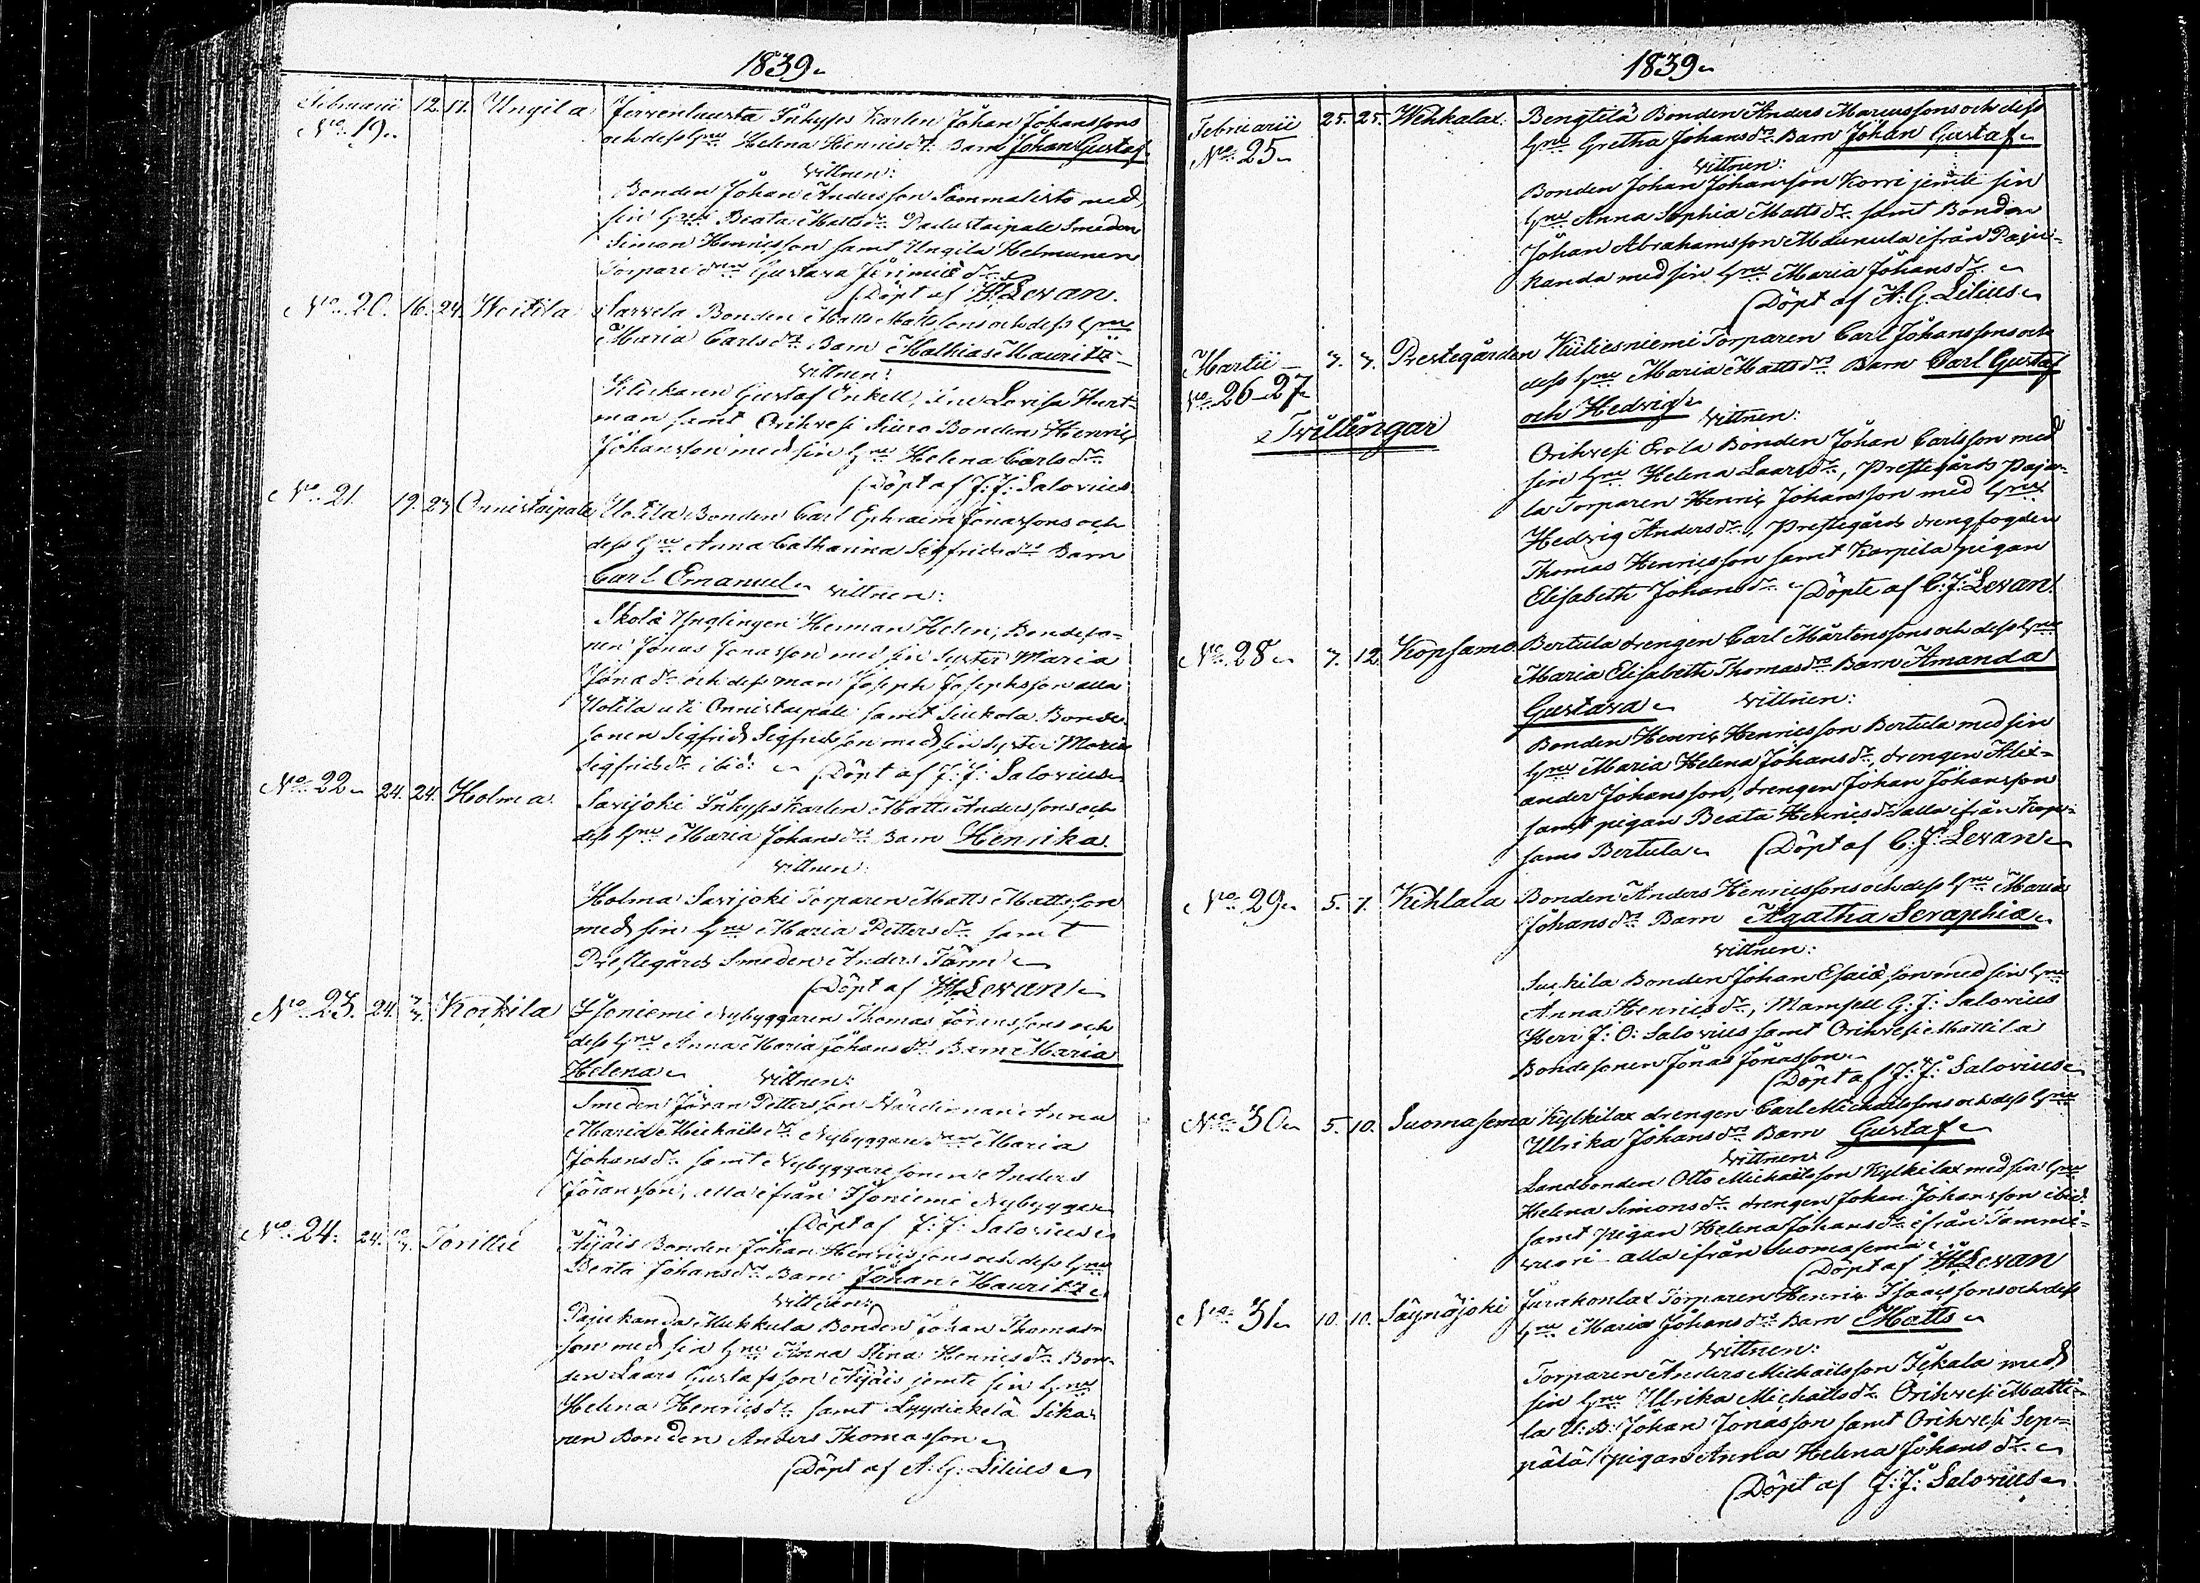 1839
Februarii 12. 17. Ungila Jerrenlausta Inhyses Karlen Johan Johanssons
No 19. och dess hru Helena Henricsdr Barn Johan Gustaf
vittnen:
Bonden Johan Andersson Sammalisto med
sin hru Beata Mattsdr Padustaipale Smeden
Simon Henricsson samt Ungila Helmunen
Torpare Gustava
Döpt af Levan.
No 20. 16. 24. Bonden Matts Mattssons och dess hru
Maria Carlsdr Barn Mathias Mauritz
vittnen:
Klockaren Gustaf Enkell, Lovisa Hurt=
man samt Orihvesi Bonden Henric
Johansson med sin hru Helena Carlsdr
Döpt af J: J: Salovius
No 21. 19. 23. Onnistaipale Uotila Bonden Carl Ephraim Jonassons och
dess hru Anna Catharina Segfridsdr Barn
Carl Emanuel vittnen:
Skolä Ynglingen Herman Helen, Bondeso=
nen Jonas Jonasson med sin Syster Maria
Jonadr och dess man Joseph Josephsson alla
Uotila uti Onnistaipale samt Bonde
sonen Segfrid Segfridsson med sin Syster Maria
Segfridsdr ibid: Döpt af J: J: Salovius
No 22 24. 24. Holma Savijoki Inhyses Karlen Matts Anderssons och
dess hru Maria Johansdr Barn Henrika
vittnen:
Holma Savijoki Torparen Matts Mattsson
med sin hru Maria Pettersdr samt
Prestegårds Smeden Anders
Döpt af Levan
No 23. 24. Isoniemi Nybyggaren Thomas Jöranssons och
dess hru Anna Maria Johansdr Barn Maria
Helena vittnen:
Smeden Jöran Pettersson Anna
Maria Michaelsdr Nybyggare Maria
Johansdr samt Nybyggaresonen Anders
Jöransson, alla ifrån Isoniemi Nybygge
Döpt af J: J: Salovius
No 24. 24. Äijäis Bonden Johan Henricssons och dess hru
Beata Johansdr Barn Johan Mauritz
vittnen:
Pajukanda Bonden Johan Thomas=
son med sin hru Anna Stina Henricsdr Bon=
den Laars Gustafsson Äijäis jemte sin hru
Helena Henricsdr samt
Bonden Anders Thomasson
Döpt af A: G: Lilius
1839
Februarii 25. 25. Wehkalax. Bengtilä Bonden Anders Marcussons och dess
No 25 hru Gretha Johansdr Barn Johan Gustaf
vittnen:
Bonden Johan Johansson Korri jemte sin
hru Anna Sophia Mattsdr samt Bonden
Johan Abrahamsson ifrån Paju=
kanda med sin hru Maria Johansdr
Döpt af A: G: Lilius
Martii 7. 7. Prestegården Torparen Carl Johanssons och
No 26-27 dess hru Maria Mattsdr Barn Carl Gustaf
Tvillingar och Hedvig vittnen:
Orihvesi Erola Bonden Johan Carlsson med
sin hru Helena Laarsdr, Prestegårds Paju=
la Torparen Henric Johansson med hru
Hedvig Andersdr, Prestegårds drengfogden
Thomas Henricsson samt Karpila pigan
Elisabeth Johansdr Döpte af C: J: Levan
No 28 7. 12. Kopsamo Bertula drengen Carl Mårtenssons och dess hru
Maria Elisabeth Thomasdr Barn Amanda
Gustava vittnen:
Bonden Henric Henricsson Bertula med sin
hru Maria Helena Johansdr, drengen Alex=
ander Johansson, drengen Johan Johansson
samt pigan Beata Henricsdr alla ifrån Kop=
samo Bertula Döpt af C: J: Levan
No 29 5. 7. Kihlala Bonden Anders Henricssons och dess hru Maria
Johansdr Barn Agatha Seraphia
vittnen:
Bonden Johan Esaiæson med sin hru
Anna Henricsdr, Mamsell G: J: Salovius
Herr J: O: Salovius samt Orihvesi Mattila
Bondesonen Jonas Jonasson
Döpt af J: J: Salovius
No 30 5. 10. Suomasema Kylkilax drengen Carl Michaelssons och dess hru
Ulrika Johansdr Barn Gustaf
vittnen
Landbonden Otto Michaelsson Kylkilax med sin hru
Helena Simonsdr drengen Johan Johansson ibid:
samt pigan Helena Johansdr ifrån Tammi=
vuori alla ifrån Suomasema
Döpt af Levan
No 31 10. 10. Säynäjoki Torparen Henric Isaacssons och dess
hru Maria Johansdr Barn Matts
vittnen:
Torparen Anders Michaelsson med
sin hru Ulrika Michaelsdr Orihvesi Matti=
la U: B: Johan Jonasson samt Orihvesi Sep=
pälä pigan Anna Helena Johansdr
Döpt af J: J: Salovius